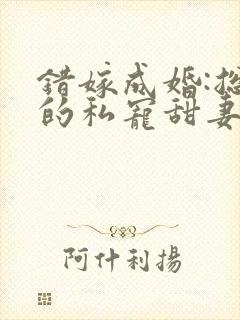 错嫁成婚:
的私寵甜妻
阿什利揚